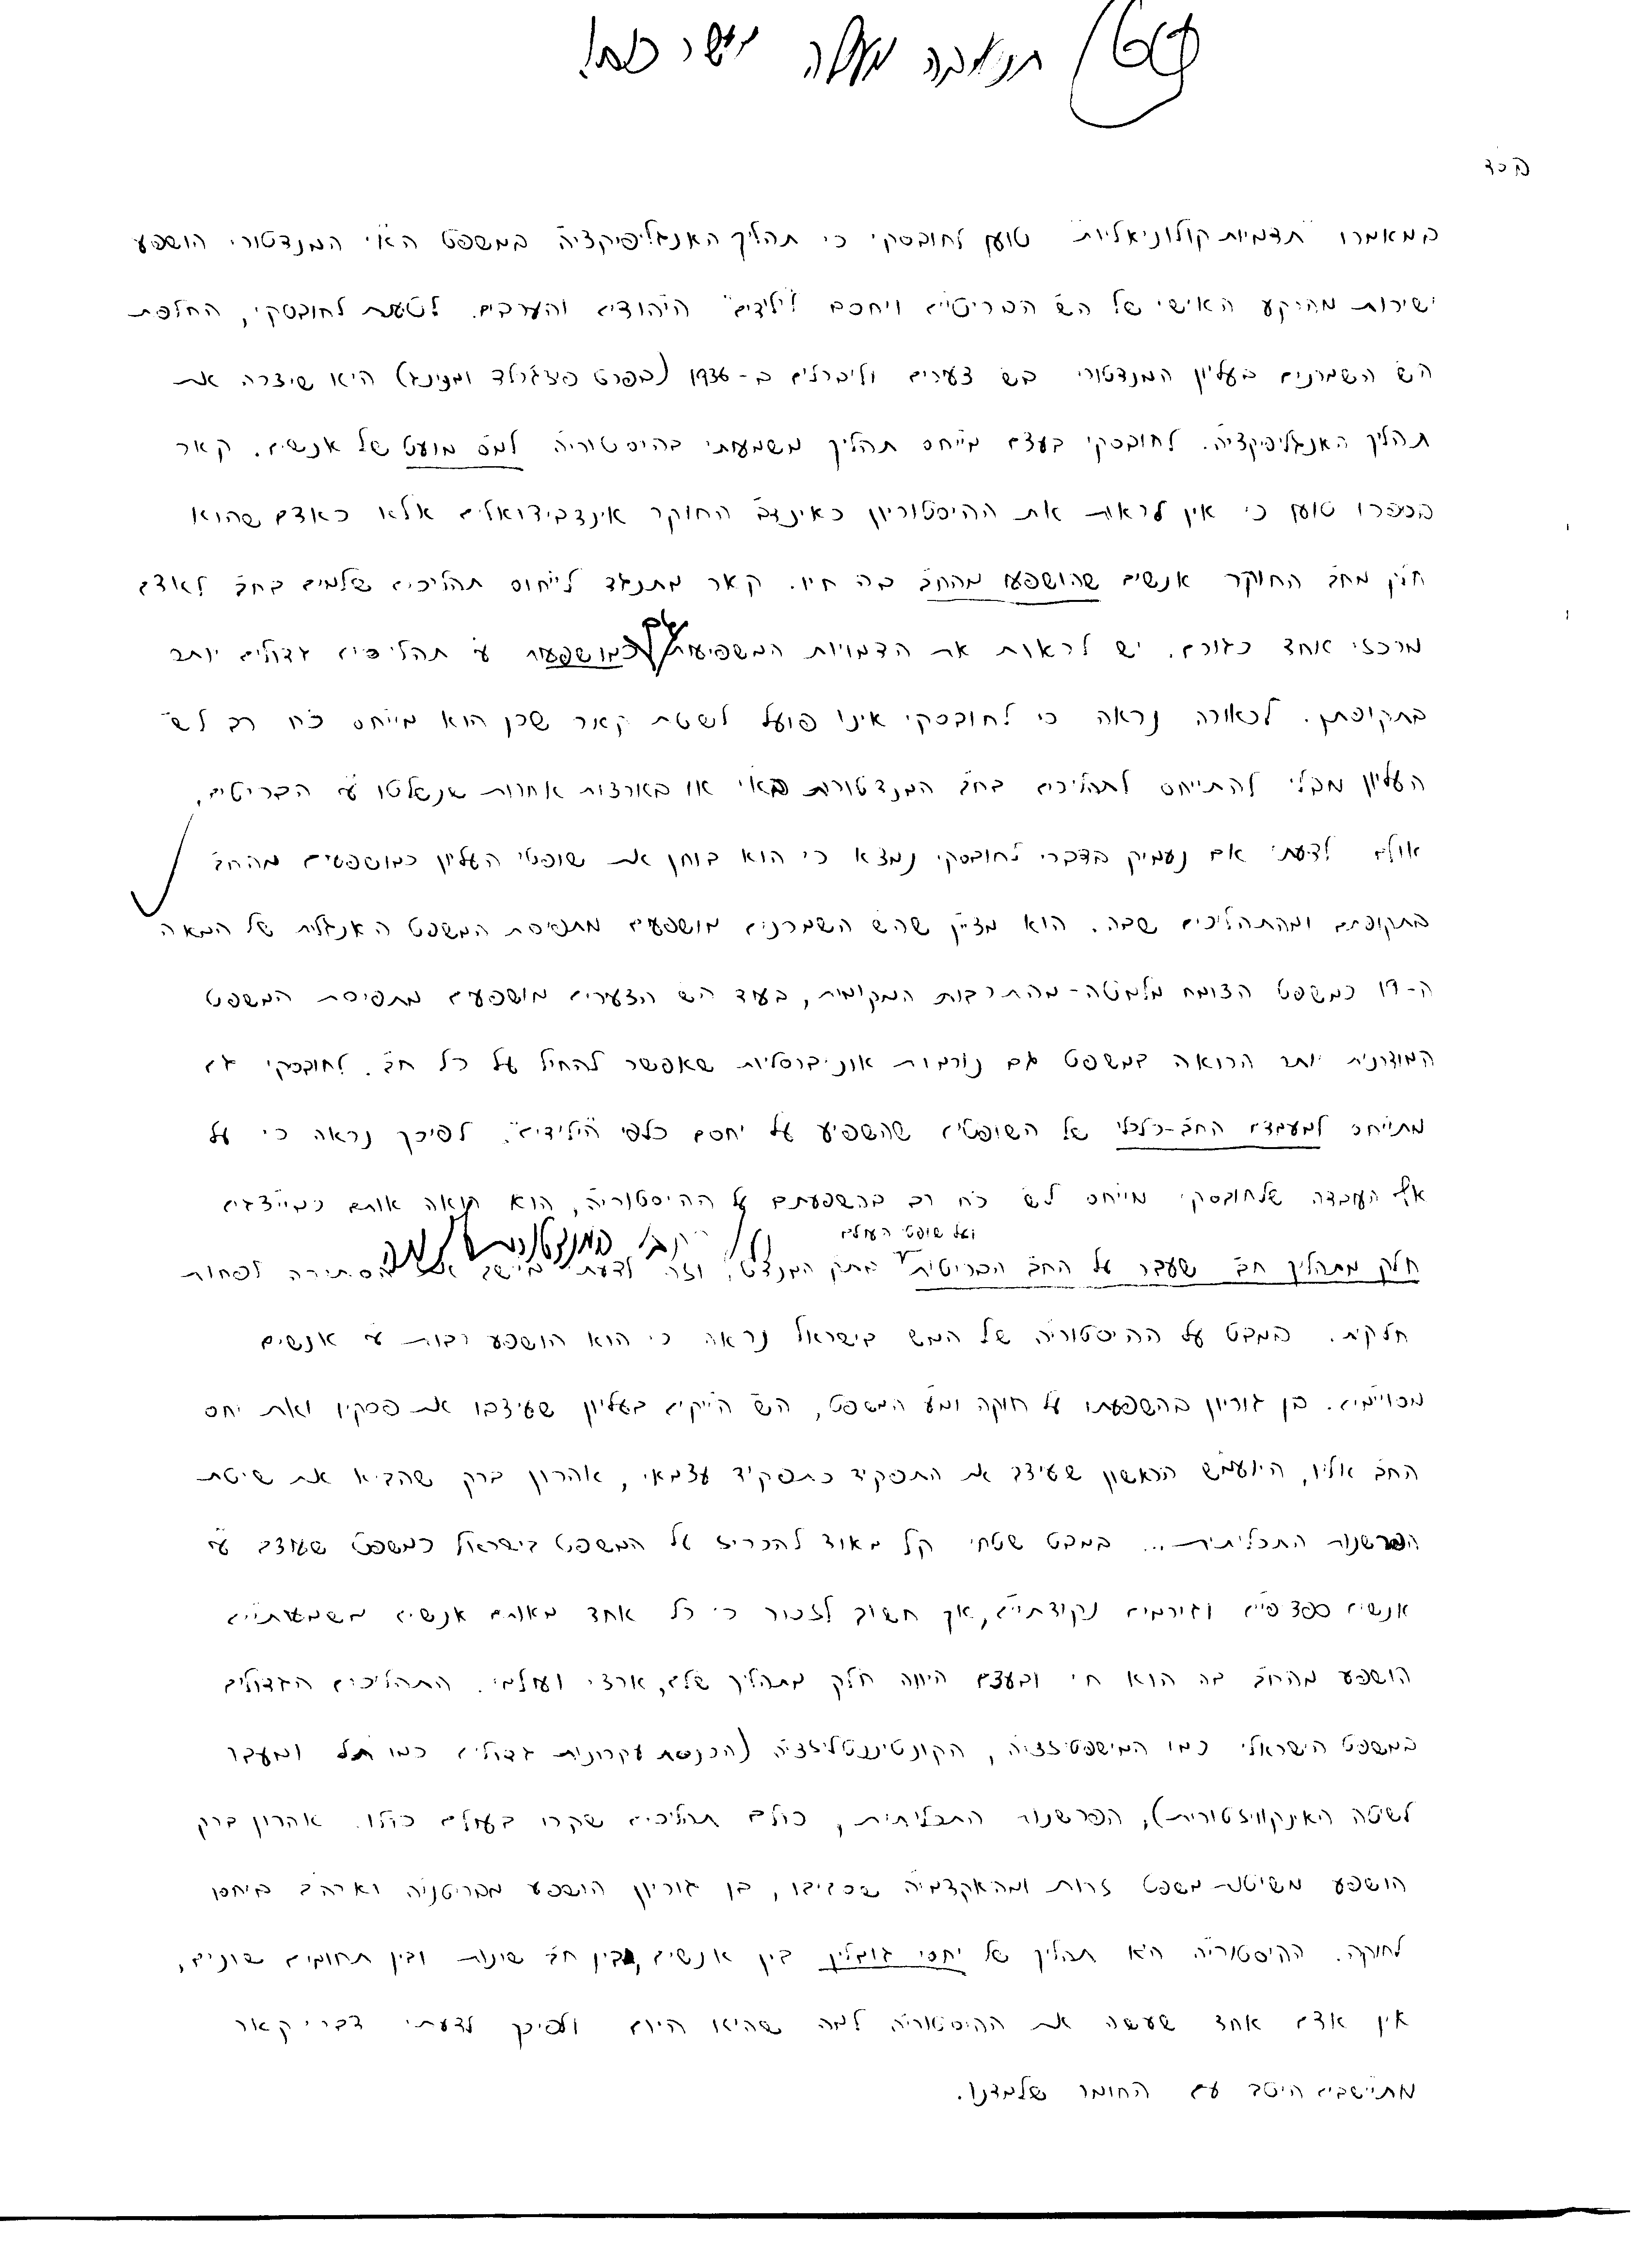 תשובה מעולה יישר כח!
בס״ד
במאמרו "תדמיות קולוניאליות" טוען לחובסקי כי תהליך האנגליפיקציה במשפט הא"י המנדטורי הושפע
ישירות מהרקע האישי של הש' הבריטיים ויחסם ל"ילידים" היהודים והערבים. לטענת לחובסקי, החלפת
הש' השמרנים בעליון המנדטורי בש' צעירים וליברלים ב-1936 (בפרט פיצג'רלד ומנינג) היא שיצרה את
תהליך האנגליפיקציה. לחובסקי בעצם מייחס תהליך משמעותי בהיסטוריה למס' מועט של אנשים. קאר
בספרו טוען כי אין לראות את ההיסטוריון כאינדב' החוקר אינדבידואלים אלא כאדם שהוא
חלק מחב' החוקר אנשים שהושפעו מהחב' בה חיו. קאר מתנגד לייחוס תהליכים שלמים בחב' לאדם
מרכזי אחד כגורם. יש לראות את הדמויות המשפיעות כמושפעות ע"י תהליכים גדולים יותר
בתקופתן. לכאורה נראה כי לחובסקי אינו פועל לשטת קאר שכן הוא מייחס כח רב לש'
העליון מבלי להתייחס לתהליכים בחב' המנדטורית בא"י או בארצות אחרות שנשלטו ע"י הבריטים.
אולם לדעתי אם נעמיק בדברי לחובסקי נמצא כי הוא בוחן את שופטי העליון כמושפעים מהחב'
בתקופתם ומהתהליכים שבה. הוא מציין שהש' השמרנים מושפעים מתפיסת המשפט האנגלית של המאה
ה-19 כמשפט הצומח מלמטה - מהתרבות המקומית, בעוד הש' הצעירים מושפעים מתפיסת המשפט
המודרנית יותר הרואה במשפט גם נורמות אוניברסליות שאפשר להחיל על כל חב'. לחובסקי גם
מתייחס למעמדם החב'-כלכלי של השופטים שהשפיע על יחסם כלפי ה"ילידים". לפיכך נראה כי על
אף העובדה שלחובסקי מייחס לש' כח רב בהשפעתם על ההיסטוריה, הוא רואה אותם כמייצגים
ועל שופטי העולם
חלק מתהליך חב' שעבר על החב' הבריטית בתק' המנדט, וזה לדעתי מיישב את הסתירה לפחות
חלקית. במבט על ההיסטוריה של המש' בישראל נראה כי הוא הושפע רבות ע"י אנשים
מסויימים. בן גוריון בהשפעתו על חוקה ומע' המשפט, הש' הייקים בעליון שעיצבו את פסקיו ואת יחס
החב' אליו, היועמ"ש הראשון שעיצב את התפקיד כתפקיד עצמאי, אהרון ברק שהביא את שיטת
הפרשנות התכליתית... במבט שטחי קל מאוד להכריז על המשפט בישראל כמשפט שעוצב ע"י
אנשים ספציפיים וגורמים נקודתיים, אך חשוב לזכור כי כל אחד מאותם אנשים משמעותיים
הושפע מהחב' בה הוא חי ובעצם היווה חלק מתהליך שלם, ארצי ועולמי. התהליכים הגדולים
במשפט הישראלי כמו המישפטיזציה, הקונטיננטליזציה (הכנסת עקרונות גדולים כמו תו"ל ומעבר
לשיטה האינקוויזטורית), הפרשנות התכליתית, כולם תהליכים שקרו בעולם כולו. אהרון ברק
הושפע משיטות משפט זרות ומהאקדמיה שסביבו, בן גוריון הושפע מבריטניה וארה"ב ביחסו
לחוקה. ההיסטוריה היא תהליך של יחסי גומלין בין אנשים, בין חב' שונות ובין תחומים שונים,
אין אדם אחד שעשה את ההיסטוריה למה שהיא היום ולפיכך לדעתי דברי קאר
מתיישבים היטב עם החומר שלמדנו.